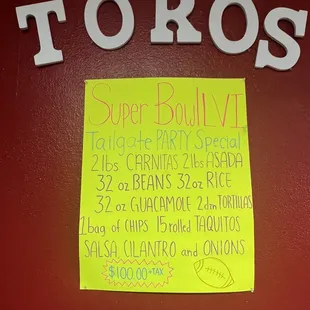 TOROS
Super Bowl LVI
Tailgate PARTY Special
2lbs CARNITAS 2lbs ASADA
32 oz BEANS 32 oz RICE
32 oz GUACAMOLE 2dzn TORTILLAS
1 bag of CHIPS 15 rolled TAQUITOS
SALSA, CILANTRO and ONIONS
$100.00 +TAX